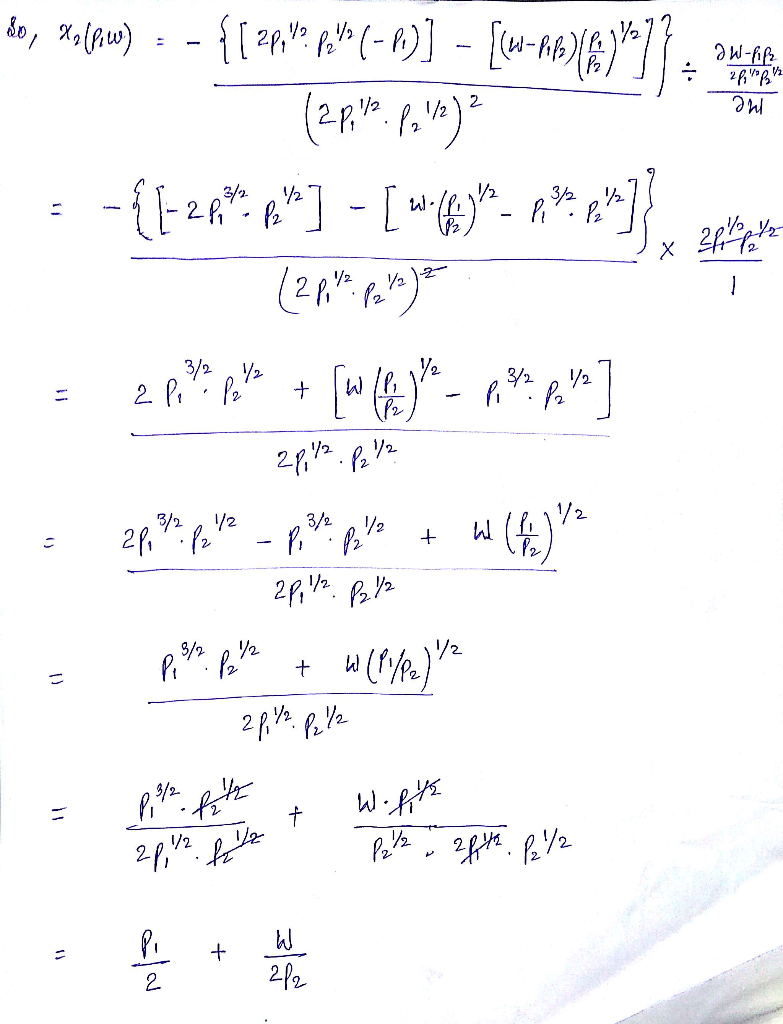 So, x₂(P,w) = - {[2P₁^1/2. P₂^1/2 (-P₁)] - [(W-P₁P₂)(P₁/P₂)^1/2]} / (2P₁^1/2. P₂^1/2)² ÷ (∂ (W-P₁P₂)/(2P₁^1/2 P₂^1/2)) / ∂W
= - {[-2P₁^3/2. P₂^1/2] - [W.(P₁/P₂)^1/2 - P₁^3/2. P₂^1/2]} / (2P₁^1/2. P₂^1/2)^2 × 2P₁^1/2 P₂^1/2 / 1
= 2P₁^3/2. P₂^1/2 + [W (P₁/P₂)^1/2 - P₁^3/2. P₂^1/2] / 2P₁^1/2. P₂^1/2
= 2P₁^3/2. P₂^1/2 - P₁^3/2. P₂^1/2 + W (P₁/P₂)^1/2 / 2P₁^1/2. P₂^1/2
= P₁^3/2. P₂^1/2 + W (P₁/P₂)^1/2 / 2P₁^1/2. P₂^1/2
= P₁^3/2. P₂^1/2 / 2P₁^1/2. P₂^1/2 + W. P₁^1/2 / P₂^1/2 . 2P₁^1/2. P₂^1/2
= P₁/2 + W/2P₂